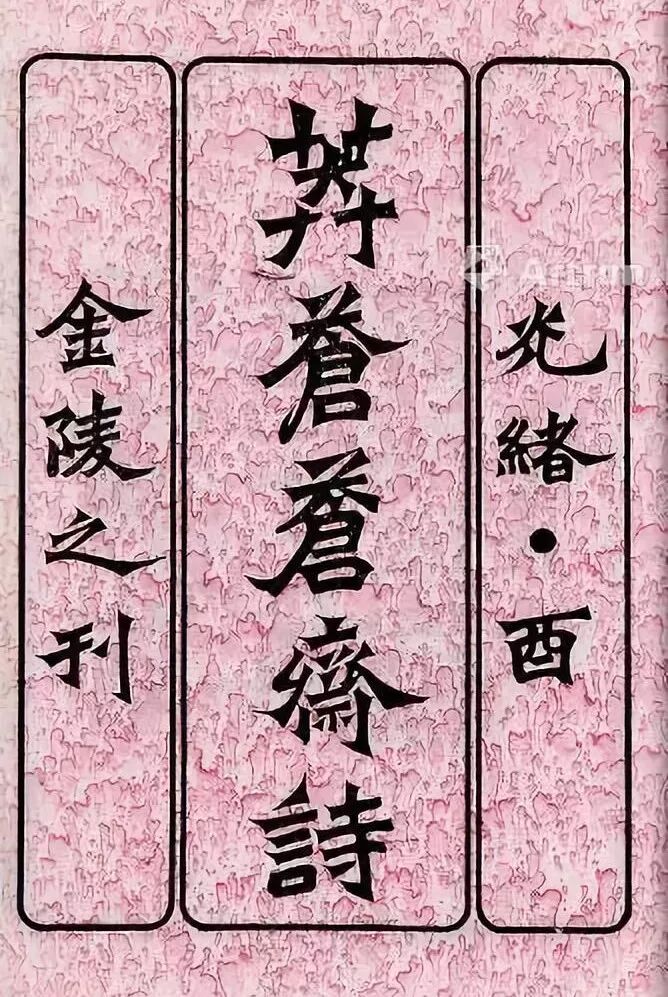 光緒•酉
莽蒼蒼齋詩
金陵之刊
Artron